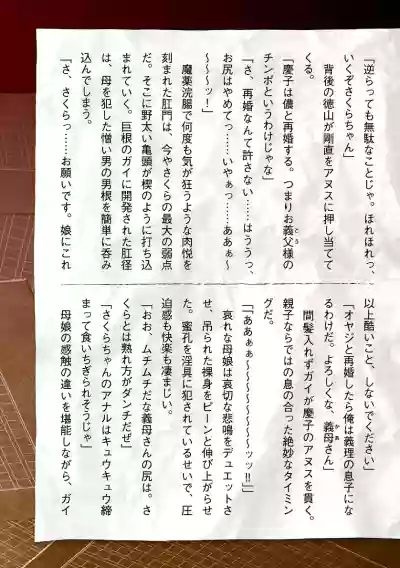 「逆らっても無駄なことじゃ。ほれほれっ、
いくぞさくらちゃん」
　背後の徳山が剛直をアヌスに押し当てて
くる。
「慶子は儂と再婚する。つまりお義父様の
チンポというわけじゃな」
「さ、再婚なんて許さない……はううっ、
お尻はやめてっ……いやぁっ……ああぁ～
～～～ッ！」
　魔薬浣腸で何度も気が狂うような肉悦を
刻まれた肛門は、今やさくらの最大の弱点
だ。そこに野太い亀頭が楔のように打ち込
まれていく。巨根のガイに開発された肛径
は、母を犯した憎い男の男根を簡単に呑み
込んでしまう。
「さ、さくらっ……お願いです。娘にこれ
以上酷いこと、しないでください」
「オヤジと再婚したら俺は義理の息子にな
るわけだ。よろしくな、義母さん」
　間髪入れずガイが慶子のアヌスを貫く。
親子ならではの息の合った絶妙なタイミン
グだ。
「「ああぁぁ～～～～～～～～ッッ!!」
　哀れな母娘は哀切な悲鳴をデュエットさ
せ、吊られた裸身をピーンと伸び上がらせ
た。蜜孔を淫具に犯されているせいで、圧
迫感も快楽も凄まじい。
「おお、ムチムチだな義母さんの尻は。さ
くらとは熟れ方がダンチだぜ」
「さくらちゃんのアナルはキュウキュウ締
まって食いちぎられそうじゃ」
　母娘の感触の違いを堪能しながら、ガイ